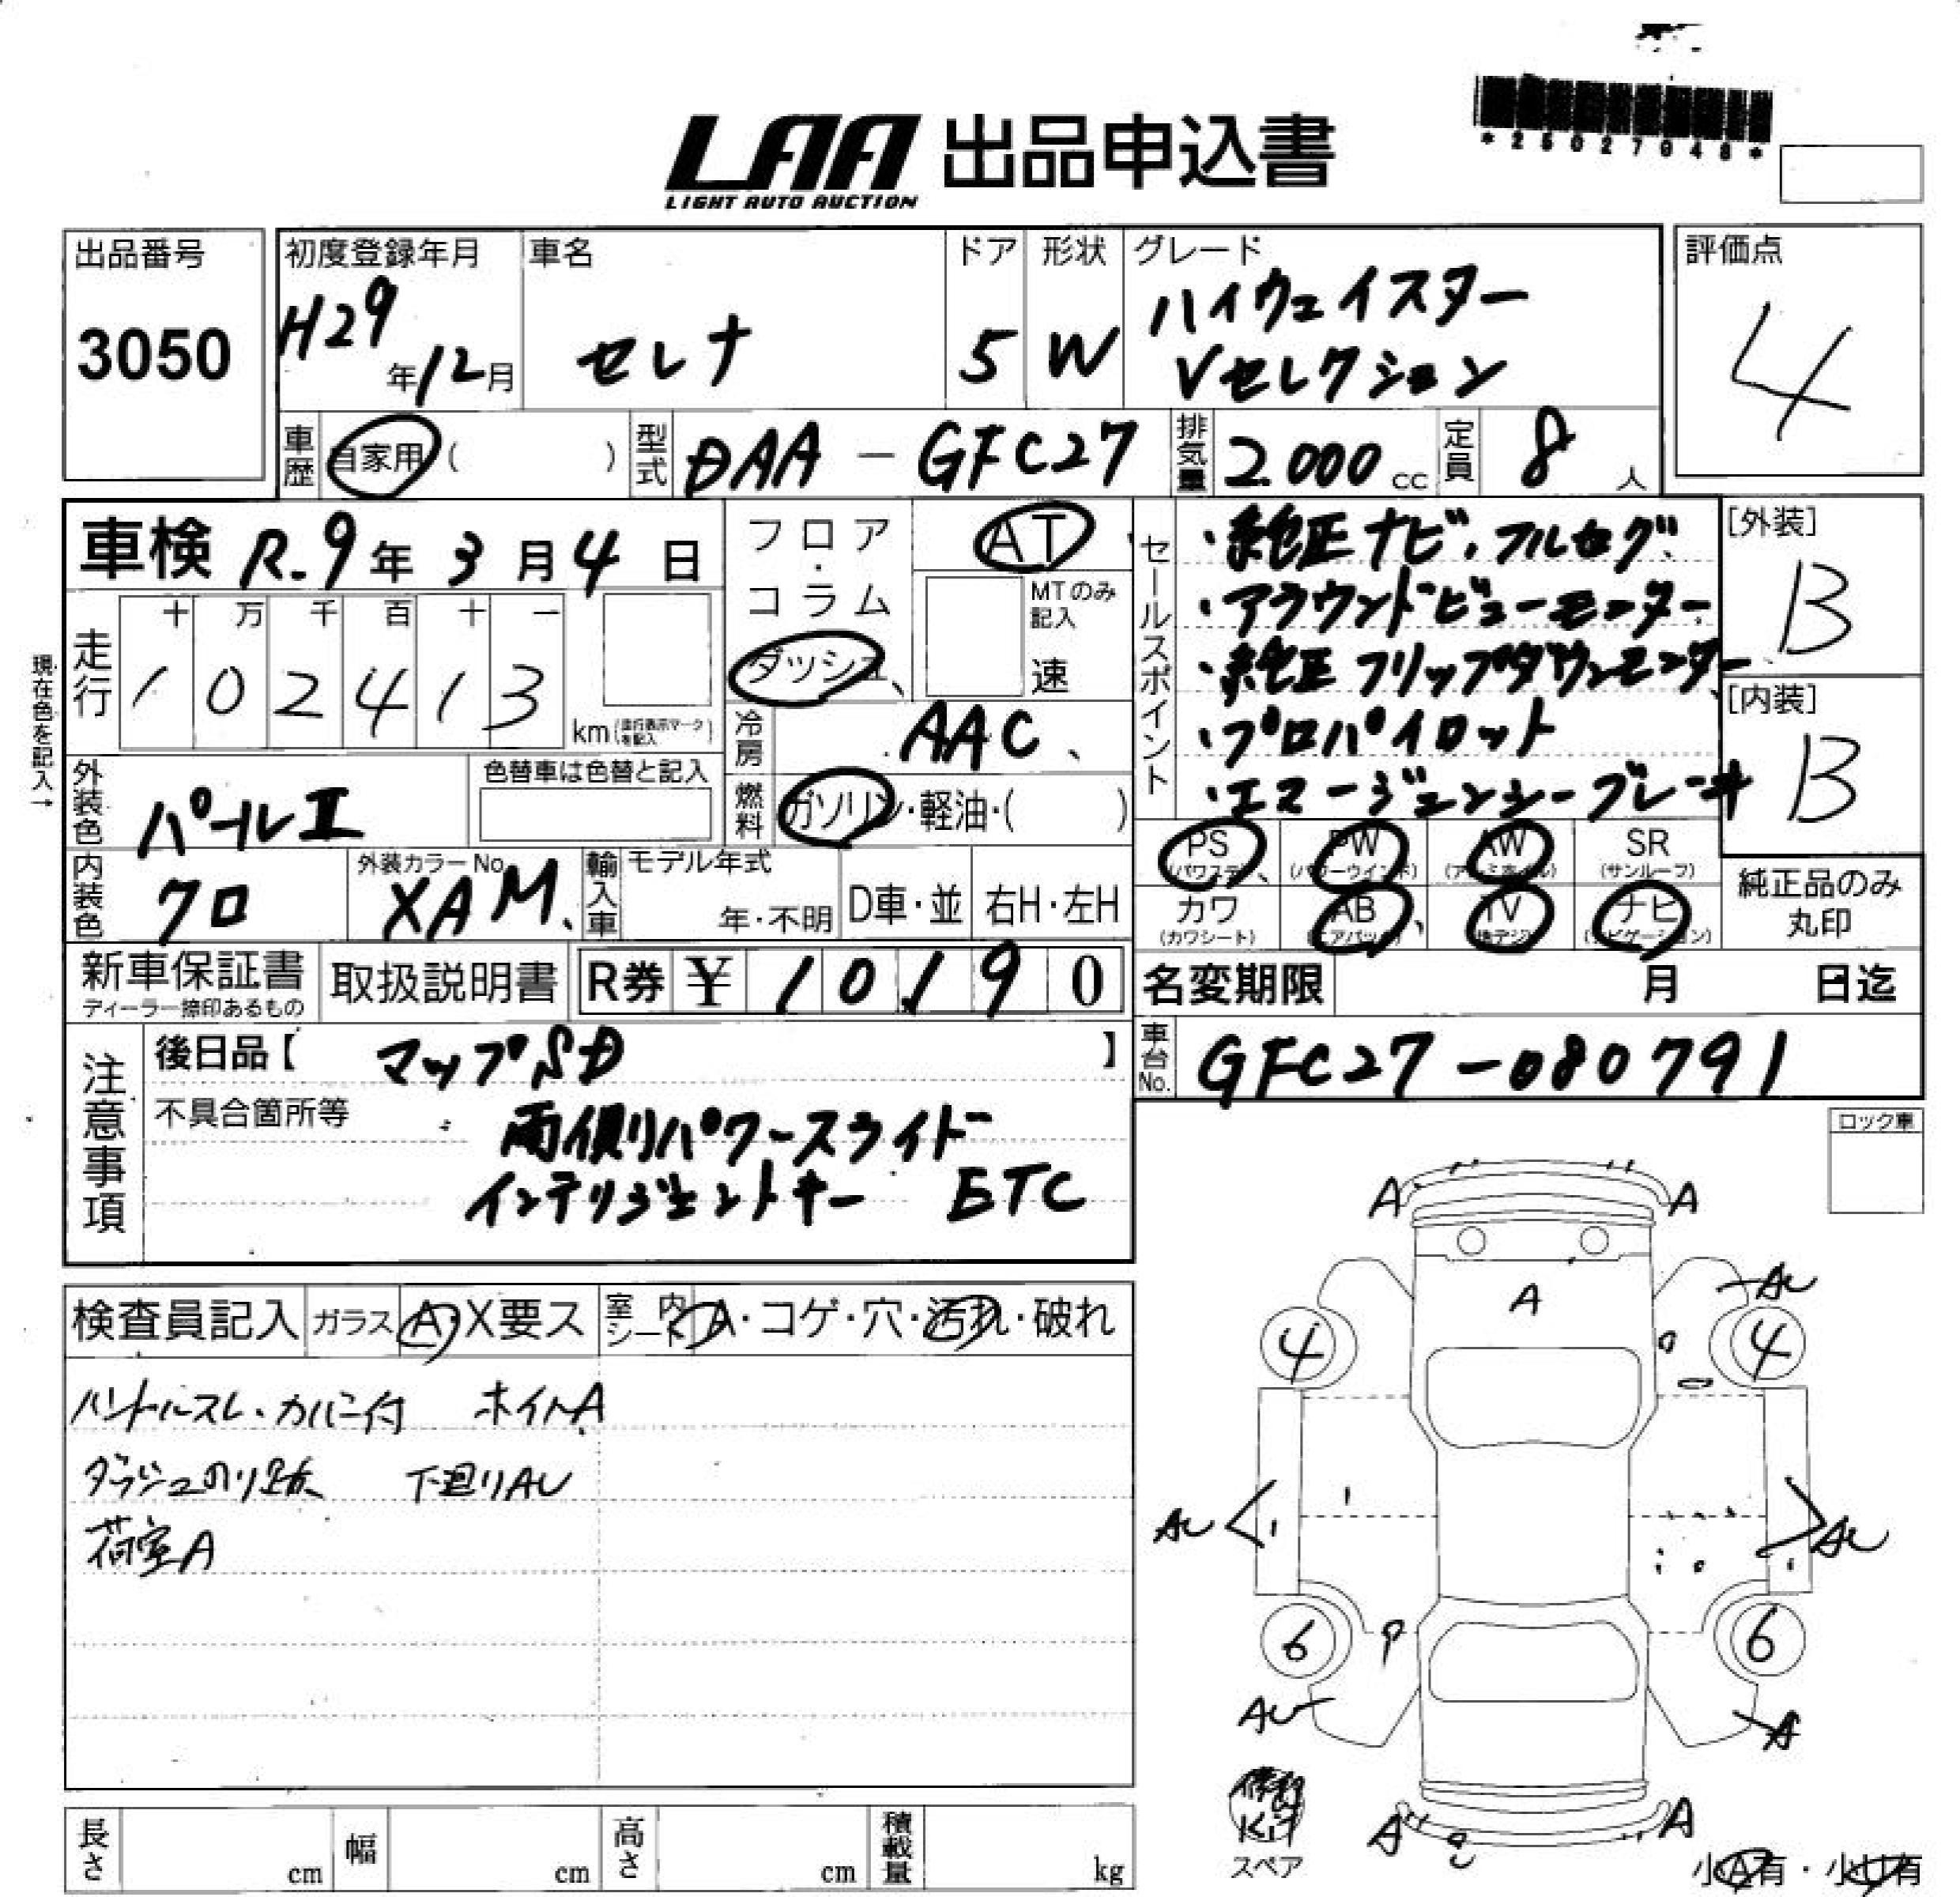 *25027048*
LAA 出品申込書
LIGHT AUTO AUCTION
出品番号
3050
初度登録年月
H29年12月
車名
セレナ
ドア
5
形状
W
グレード
ハイウェイスター
Vセレクション
評価点
4
車歴 自家用 ( )
型式 DAA-GFC27
排気量 2.000 cc
定員 8 人
車検 R.9年 3月 4日
現在色を記入→
走行
十 万 千 百 十 一
1 0 2 4 1 3
km (走行表示マークを記入)
フロア・コラム
ダッシュ、
AT
MTのみ記入
速
冷房 AAC、
燃料 ガソリン・軽油・( )
セールスポイント
・純正ナビ、フルセグ
・アラウンドビューモニター
・純正フリップダウンモニター
・プロパイロット
・エマージェンシーブレーキ
[外装]
B
[内装]
B
外装色 パールII
色替車は色替と記入
内装色 クロ
外装カラーNo. XAM、
輸入車 モデル年式
年・不明
D車・並
右H・左H
PS (パワステ)
PW (パワーウインド)
AW (アルミホイル)
SR (サンルーフ)
カワ (カワシート)
AB (エアバック)
TV (地デジ)
ナビ (ナビゲーション)
純正品のみ
丸印
新車保証書
ディーラー捺印あるもの
取扱説明書
R券 ¥ 10190
名変期限 月 日迄
注意事項
後日品【 マップSD 】
不具合箇所等
両側パワースライド
インテリジェントキー ETC
車台No. GFC27-080791
ロック車
検査員記入
ガラス A・X要ス
室内シート A・コゲ・穴・汚れ・破れ
ハンドルスレ、カバー付 ホイルA
ダッシュのり跡 下廻りAU
荷室A
A A
A
AU
4 4
AU AU
6 6
AU A
A A
修理
Kit
スペア
小A有・小U有
長さ cm
幅 cm
高さ cm
積載量 kg